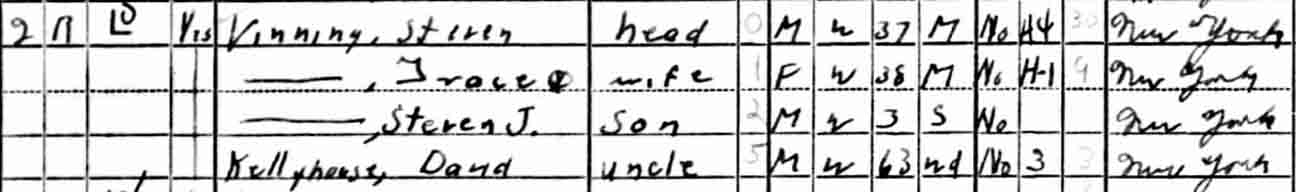 2 R 10 Yes Vinning, Steven head 0 M W 37 M No H4 30 New York
———, Grace wife 1 F W 38 M No H-1 9 New York
———, Steven J. son 2 M W 3 S No New York
Kellyhouse, David uncle 5 M W 63 wd No 3 3 New York